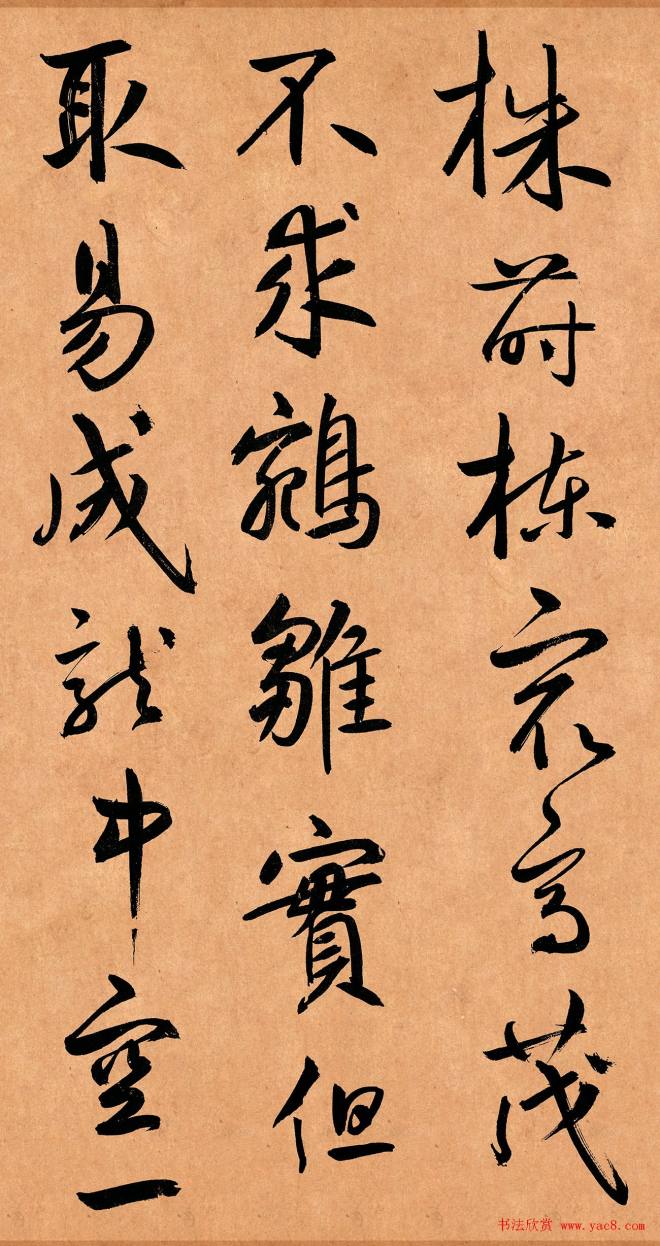 株蒔楝最高茂
不求鵷雛實但
取易成就中空一
书法欣赏 www.yac8.com